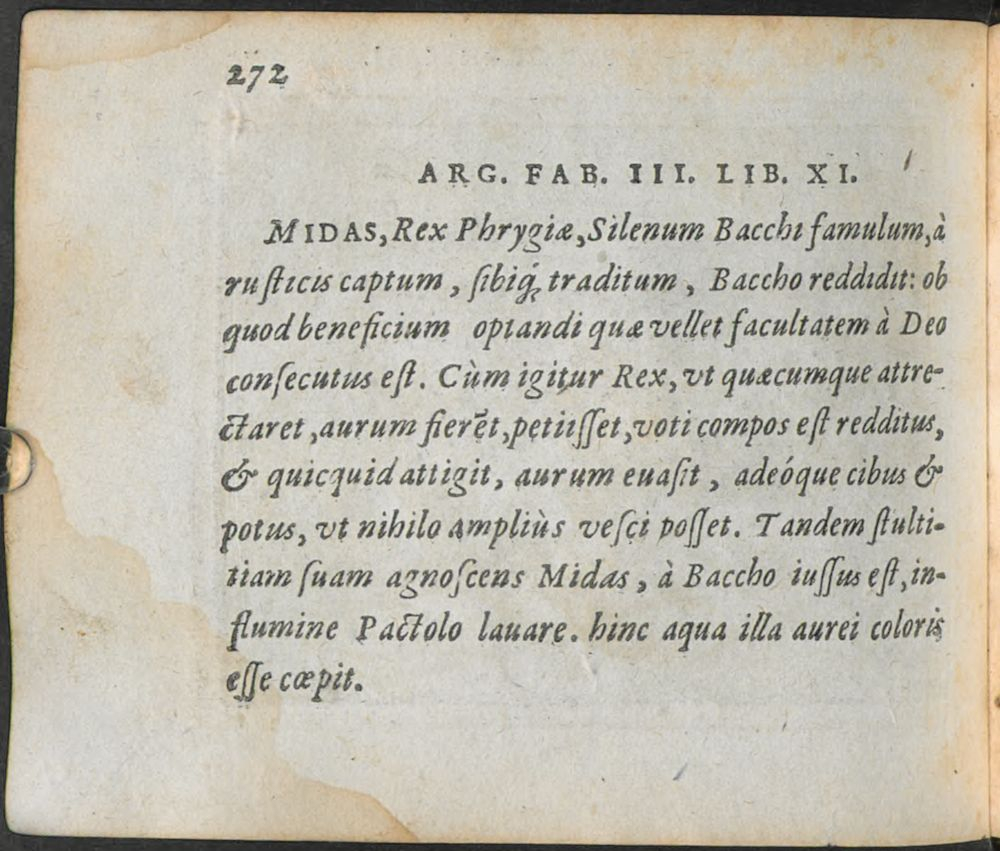 272
ARG. FAB. III. LIB. XI.
MIDAS, Rex Phrygiæ, Silenum Bacchi famulum, à
ruſticis captum, ſibiq́; traditum, Baccho reddidit: ob
quod beneficium optandi quæ vellet facultatem à Deo
conſecutus eſt. Cùm igitur Rex, vt quæcumque attre-
ctaret, aurum fierēt, petiiſſet, voti compos eſt redditus,
& quicquid attigit, aurum euaſit, adeóque cibus &
potus, vt nihilo ampliùs veſci poſſet. Tandem ſtulti-
tiam ſuam agnoſcens Midas, à Baccho iuſſus eſt, in-
flumine Pactolo lauare. hinc aqua illa aurei coloris
eſſe cœpit.